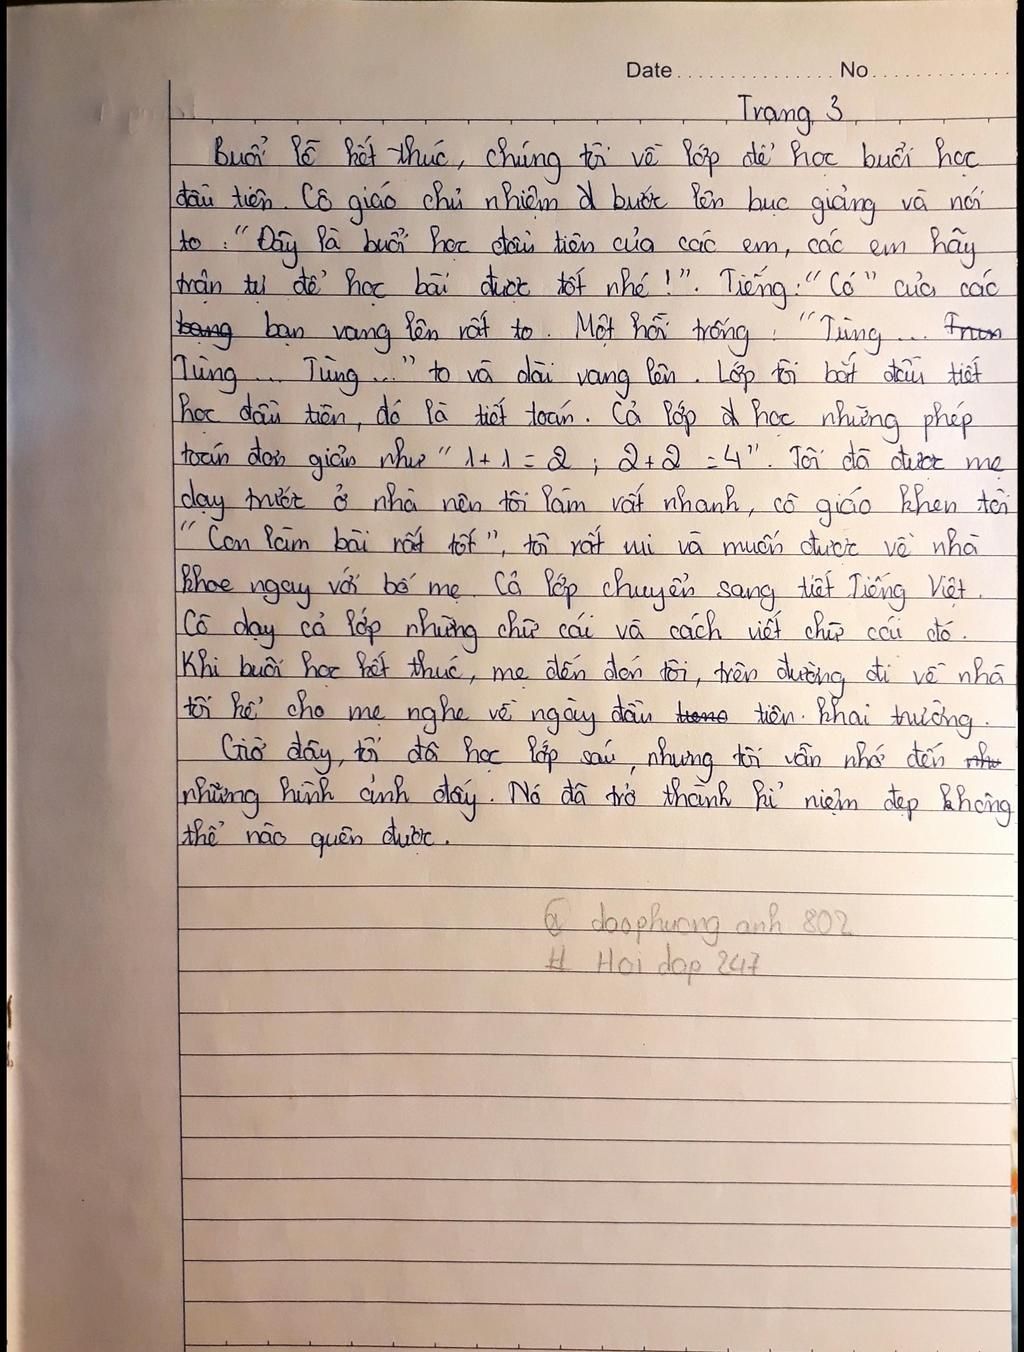 Date............... No.............
Trang 3
Buổi lễ kết thúc, chúng tôi về lớp để học buổi học
đầu tiên. Cô giáo chủ nhiệm bước lên bục giảng và nói
to: "Đây là buổi học đầu tiên của các em, các em hãy
trận tự để học bài được tốt nhé!". Tiếng: "Có" của các
bạn vang lên rất to. Một hồi trống: "Tùng...
Tùng... Tùng..." to và dài vang lên. Lớp tôi bắt đầu tiết
học đầu tiên, đó là tiết toán. Cả lớp học những phép
toán đơn giản như "1+1=2; 2+2=4". Tôi đã được mẹ
dạy trước ở nhà nên tôi làm rất nhanh, cô giáo khen tôi
"Con làm bài rất tốt", tôi rất vui và muốn được về nhà
khoe ngay với bố mẹ. Cả lớp chuyển sang tiết Tiếng Việt.
Cô dạy cả lớp những chữ cái và cách viết chữ cái đó.
Khi buổi học kết thúc, mẹ đến đón tôi, trên đường đi về nhà
tôi kể cho mẹ nghe về ngày đầu tiên khai trường.
Giờ đây, tôi đã học lớp sáu, nhưng tôi vẫn nhớ đến
những hình ảnh đấy. Nó đã trở thành kỉ niệm đẹp không
thể nào quên được.
@ daophuong anh 802
# Hoi dap 247